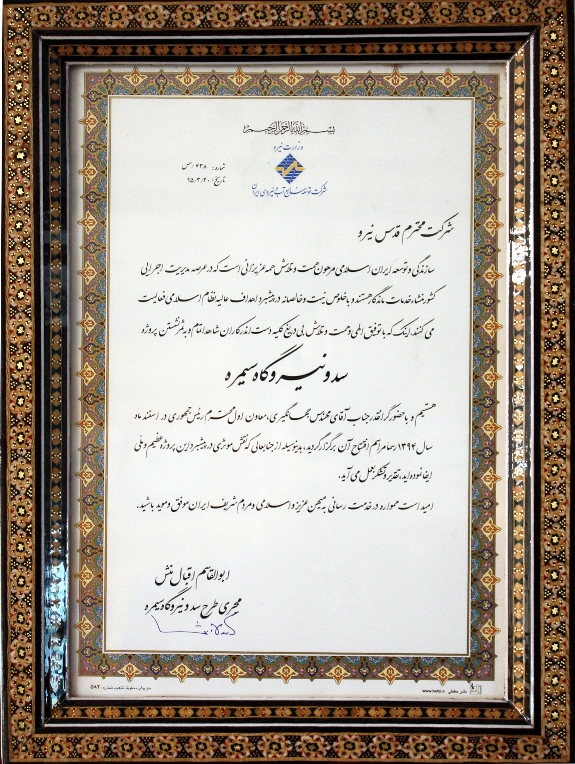 بسم الله الرحمن الرحیم
وزارت نیرو
شماره: ۴۳۸/س
تاریخ: ۹۵/۳/۲۰
شرکت توسعه منابع آب و نیروی ایران
شرکت محترم قدس نیرو
سازندگی و توسعه ایران اسلامی مرهون همت و تلاش همه عزیزانی است که در عرصه مدیریت اجرایی
کشور منشاء خدمات ماندگار هستند و با خلوص نیت و خالصانه در پیشبرد اهداف عالیه نظام اسلامی فعالیت
می کنند. اینک که با توفیق الهی و همت و تلاش بی دریغ کلیه دست اندرکاران شاهد اتمام و به ثمر نشستن پروژه
سد و نیروگاه سیمره
هستیم و با حضور گرانقدر جناب آقای مهندس جهانگیری، معاون اول محترم رئیس جمهوری در اسفند ماه
سال ۱۳۹۴ رسما مراسم افتتاح آن برگزار گردید، بدینوسیله از جنابعالی که نقش موثری در پیشبرد این پروژه عظیم و ملی
ایفا نموده اید، تقدیر و تشکر بعمل می آید.
امید است همواره در خدمت رسانی به میهن عزیز و اسلامی و مردم شریف ایران موفق و موید باشید.
ابوالقاسم اقبال منش
مجری طرح سد و نیروگاه سیمره